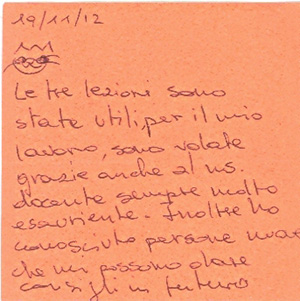 19/11/12
Le tre lezioni sono
state utili per il mio
lavoro, sono volate
grazie anche al ns.
docente sempre molto
esauriente. Inoltre ho
conosciuto persone nuove
che mi possono dare
consigli in futuro